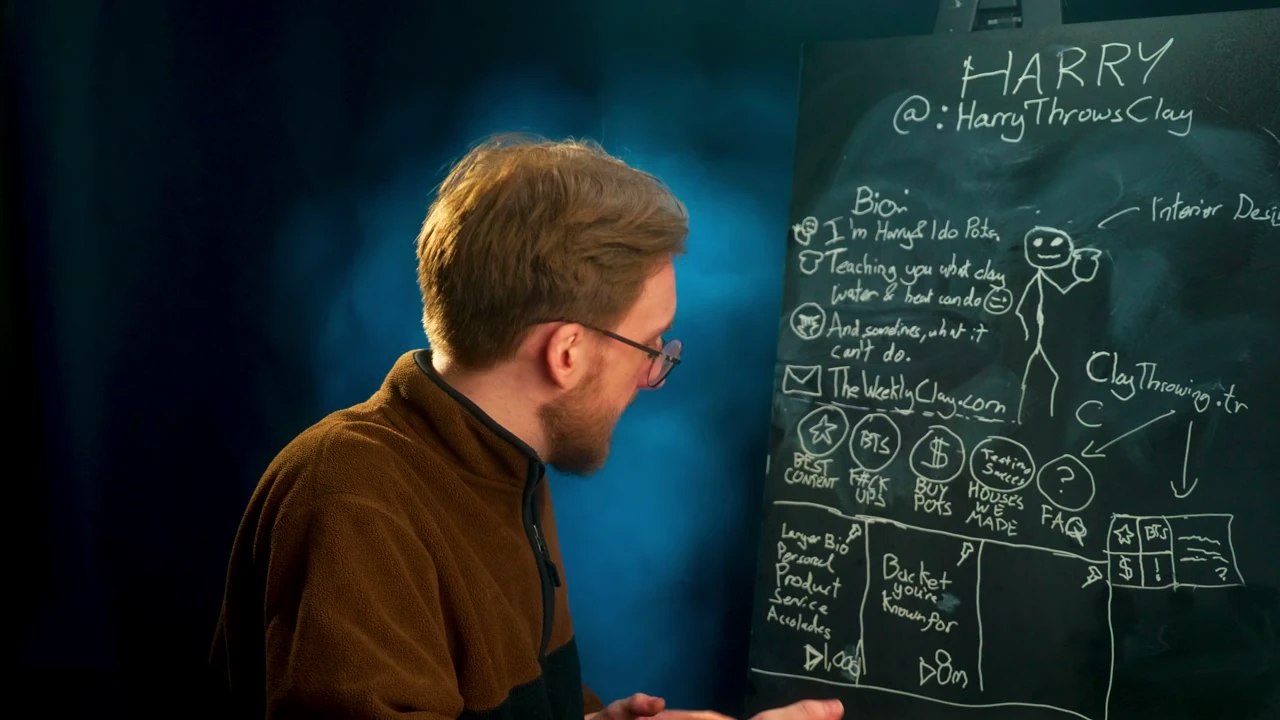 HARRY
@:HarryThrowsClay
Interior Desi
Bio:
I'm Harry & I do Pots.
Teaching you what clay
Water & heat can do
And sometimes, what it
can't do.
TheWeeklyClay.com
ClayThrowing.tr
C
BTS
$
?
BEST
CONTENT
F#CK
UPS
BUY
POTS
HOUSES
WE
MADE
FAQ
BTS
$
!
?
Larger Bio
Personal
Product
Service
Accolades
Bucket
you're
Known for
8m